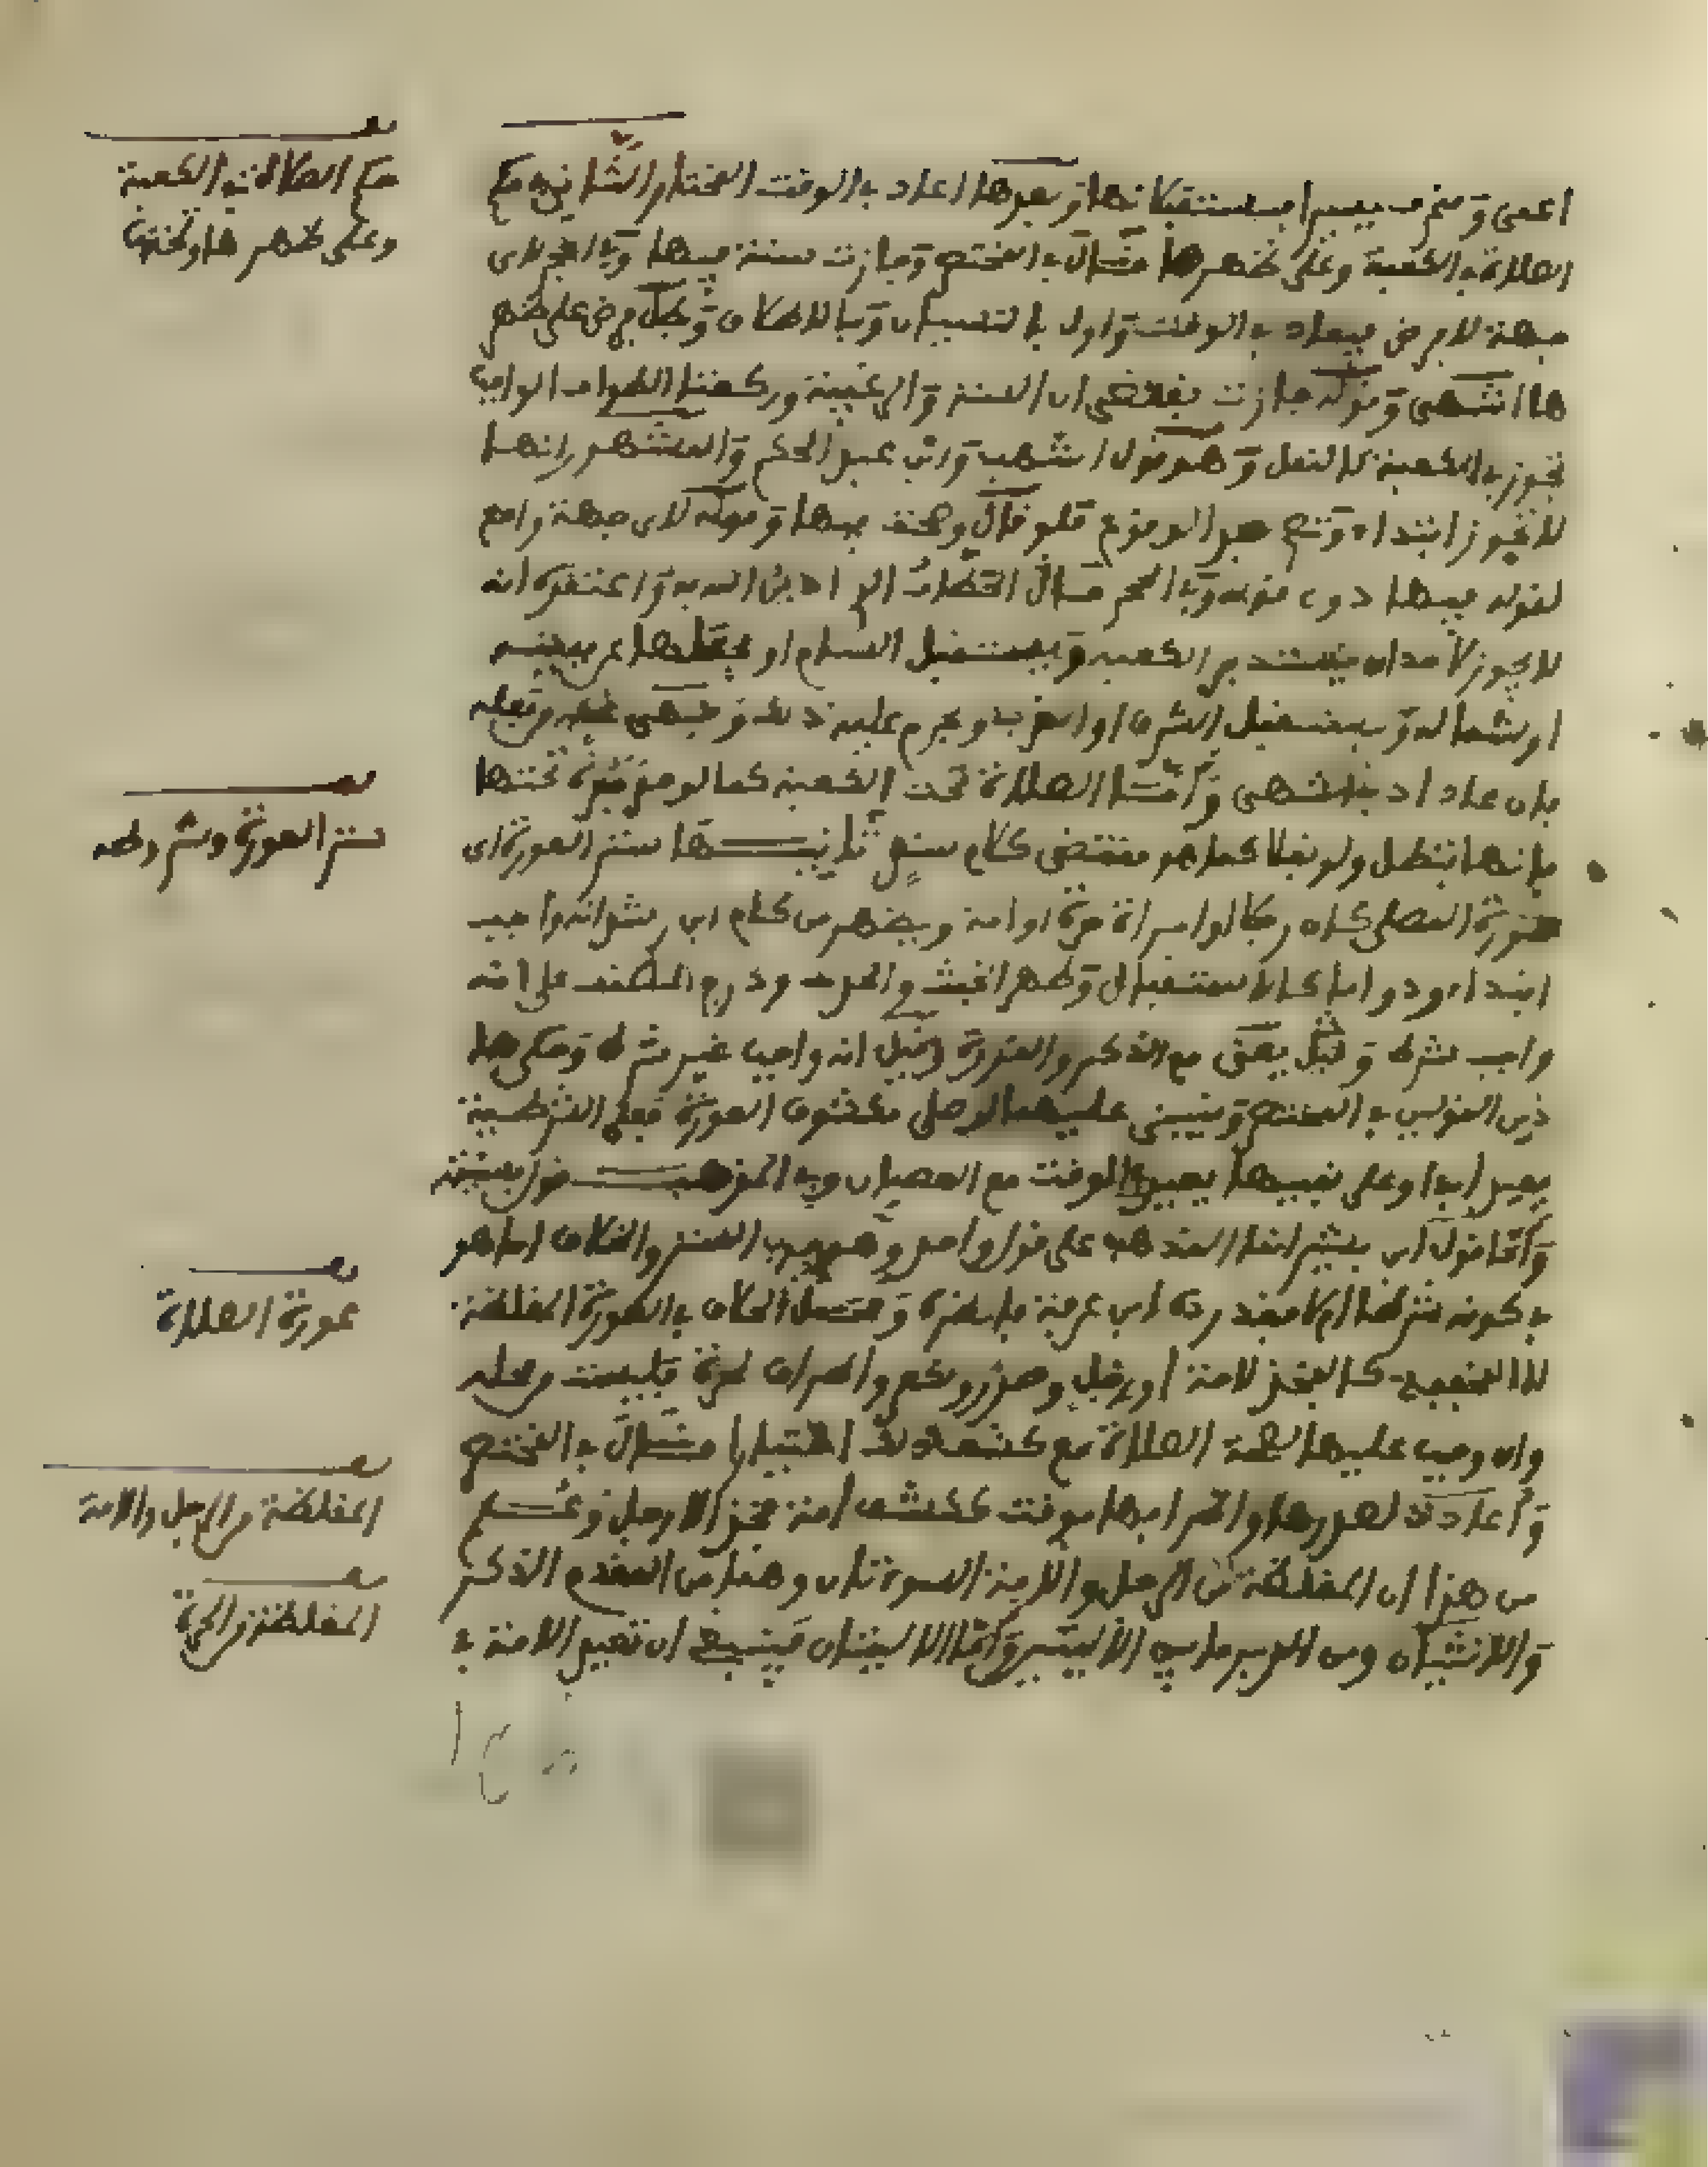 اعمى ومنحرف يسيرا فيستقبلانها وبعدها اعاد في الوقت المختار الثاني حكم
الصلاة في الكعبة وعلى ظهرها قال في المختصر وجازت سنة فيها وفي الحجر لاي
جهة لا فرض فيعاد في الوقت واول بالنسيان وبالاطلاق وبطل فرض على ظهر
ها انتهى وقوله جازت يقتضي ان السنة والرغيبة وركعتا الطواف الواجب
تجوز في الكعبة كالنفل وهو قول اشهب وابن عبد الحكم والمشهور انها
لا تجوز ابتداء وتصح بعد الوقوع فلو قال وصحت فيها وقوله لاي جهة راجع
لقوله فيها دون قوله وفي الحجر قال الحطاب الذي ادين الله به واعتقده انه
لا يجوز لاحد ان يستدبر الكعبة ويستقبل الشام او يجعلها عن يمينه
او شماله ويستقبل الشرق او الغرب ويحرم عليه ذلك وينهى عن فعله
فان عاد ادب انتهى واما الصلاة تحت الكعبة كما لو حفر حفرة تحتها
فانها تبطل ولو نفلا كما هو مقتضى كلام سند ثانيها ستر العورة اي
عورة المصلي كان رجلا او امراة حرة او امة ويظهر من كلام ابن رشد انه واجب
ابتداء ودواما كالاستقبال وطهر الخبث والحدث ودرج المصنف على انه
واجب شرط وقيل يعني مع الذكر والقدرة وقيل انه واجب غير شرط وحكى ها
ذين القولين في المختصر وينبني عليهما لو صلى مكشوف العورة فعلى الشرطية
يعيد ابدا وعلى نفيها يعيد في الوقت مع العصيان وفي المذهب قول بسنيته
واما قول ابن بشير انما المذهب على قول واحد وهو وجوب الستر والخلاف انما هو
في كونه شرطا ام لا فقد رده ابن عرفة فانظره ومحل الخلاف في العورة المغلظة
لا الخفيفة كالفخذ لامة او رجل وصدر وركم واطراف لحرة فليست محله
وان وجب عليها لصحة الصلاة مع كشف ذلك اختيارا قال في المختصر
واعادت لصدرها واطرافها بوقت ككشف امة فخذا لا رجل وعلم
من هذا ان المغلظة من الرجل والامة السوءتان وهما من المقدم الذكر
والانثيان ومن المؤخر ما بين الاليتين واما الاليتان فينبغي ان تعيد الامة في
حكم الصلاة في الكعبة
وعلى ظهرها وتحتها
ستر العورة وشروطه
عورة الصلاة
المغلظة من الرجل والامة
المغلظة من الحرة